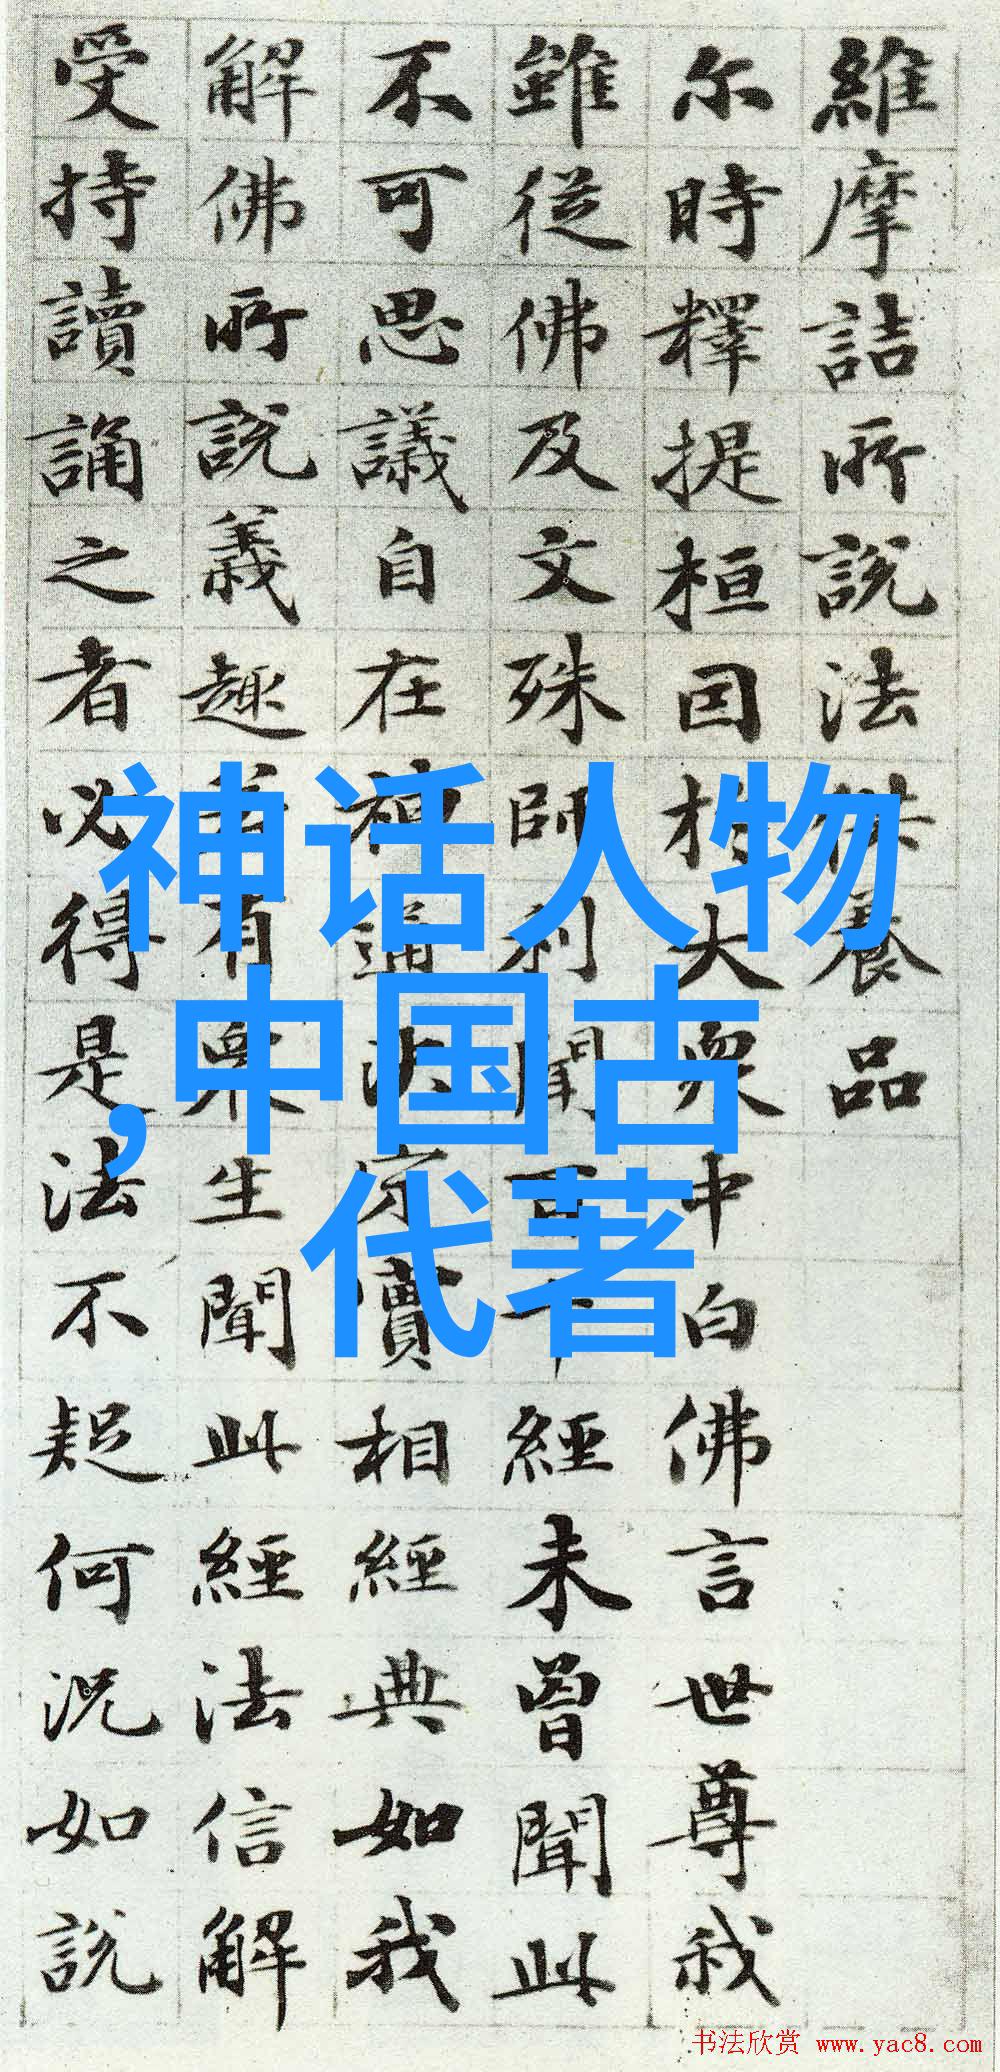 維摩詰所說法供養品
尔時釋提桓因於大衆中白佛言世尊我
雖從佛及文殊師利聞百千經未曾聞此
不可思議自在神通決定實相經典如我
解佛所說義趣若有衆生聞此經法信解
受持讀誦之者必得是法不疑何況如說
神话人物
,中国古
代著
书法欣赏 www.yac8.com